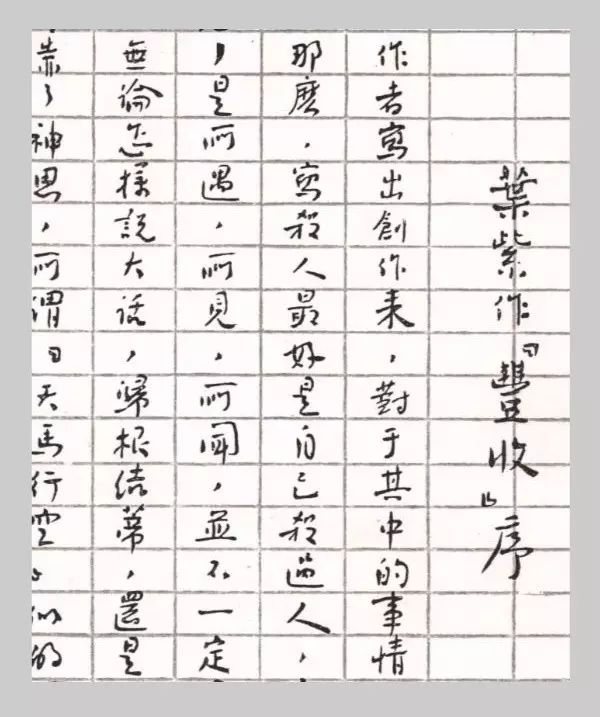 葉紫作『豐收』序
作者寫出創作来，對于其中的事情
那麽，寫殺人最好是自己殺過人，
，是所遇，所見，所聞，並不一定
無論怎樣說大話，歸根結蒂，還是
靠了神思，所謂「天馬行空」似的